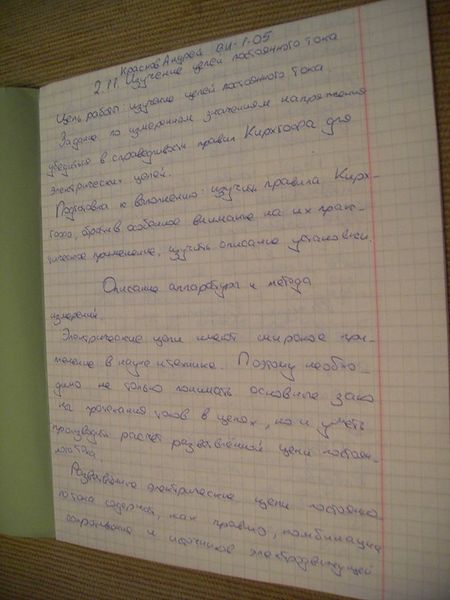 Краснов Андрей ФИ-1-05
2.11 Изучение цепей постоянного тока
Цель работы изучение цепей постоянного тока
Задача: по измеренным значениям напряжения
убедиться в справедливости правил Кирхгофа для
электрических цепей.
Подготовка к выполнению: изучить правила Кирх-
гофа, обратив особенное внимание на их прак-
тическое применение, изучить описание установки.
Описание аппаратуры и метода
измерений.
Электрические цепи имеют широкое при-
менение в науке и технике. Поэтому необхо-
димо не только понимать основные зако
на протекания токов в цепях, но и уметь
производить расчет разветвлённой цепи постоян-
ного тока.
Разветвлённые электрические цепи постоянно
го тока содержат, как правило, комбинацию
сопротивлений и источников электродвижущей